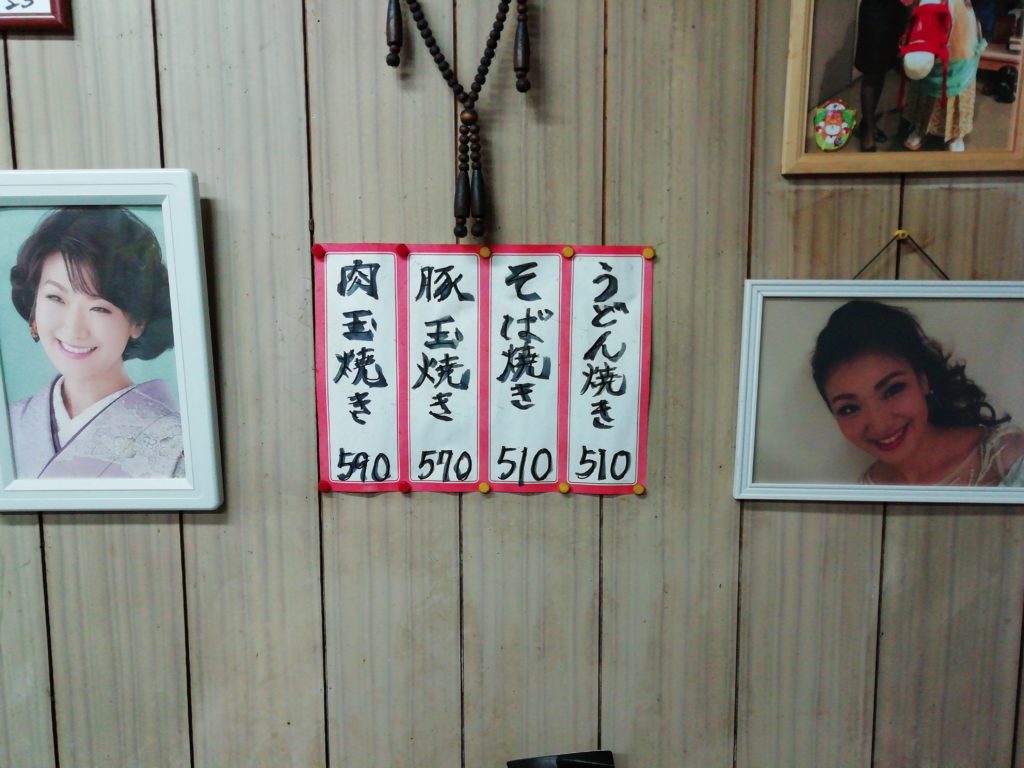 うどん焼き
510
そば焼き
510
豚玉焼き
570
肉玉焼き
590